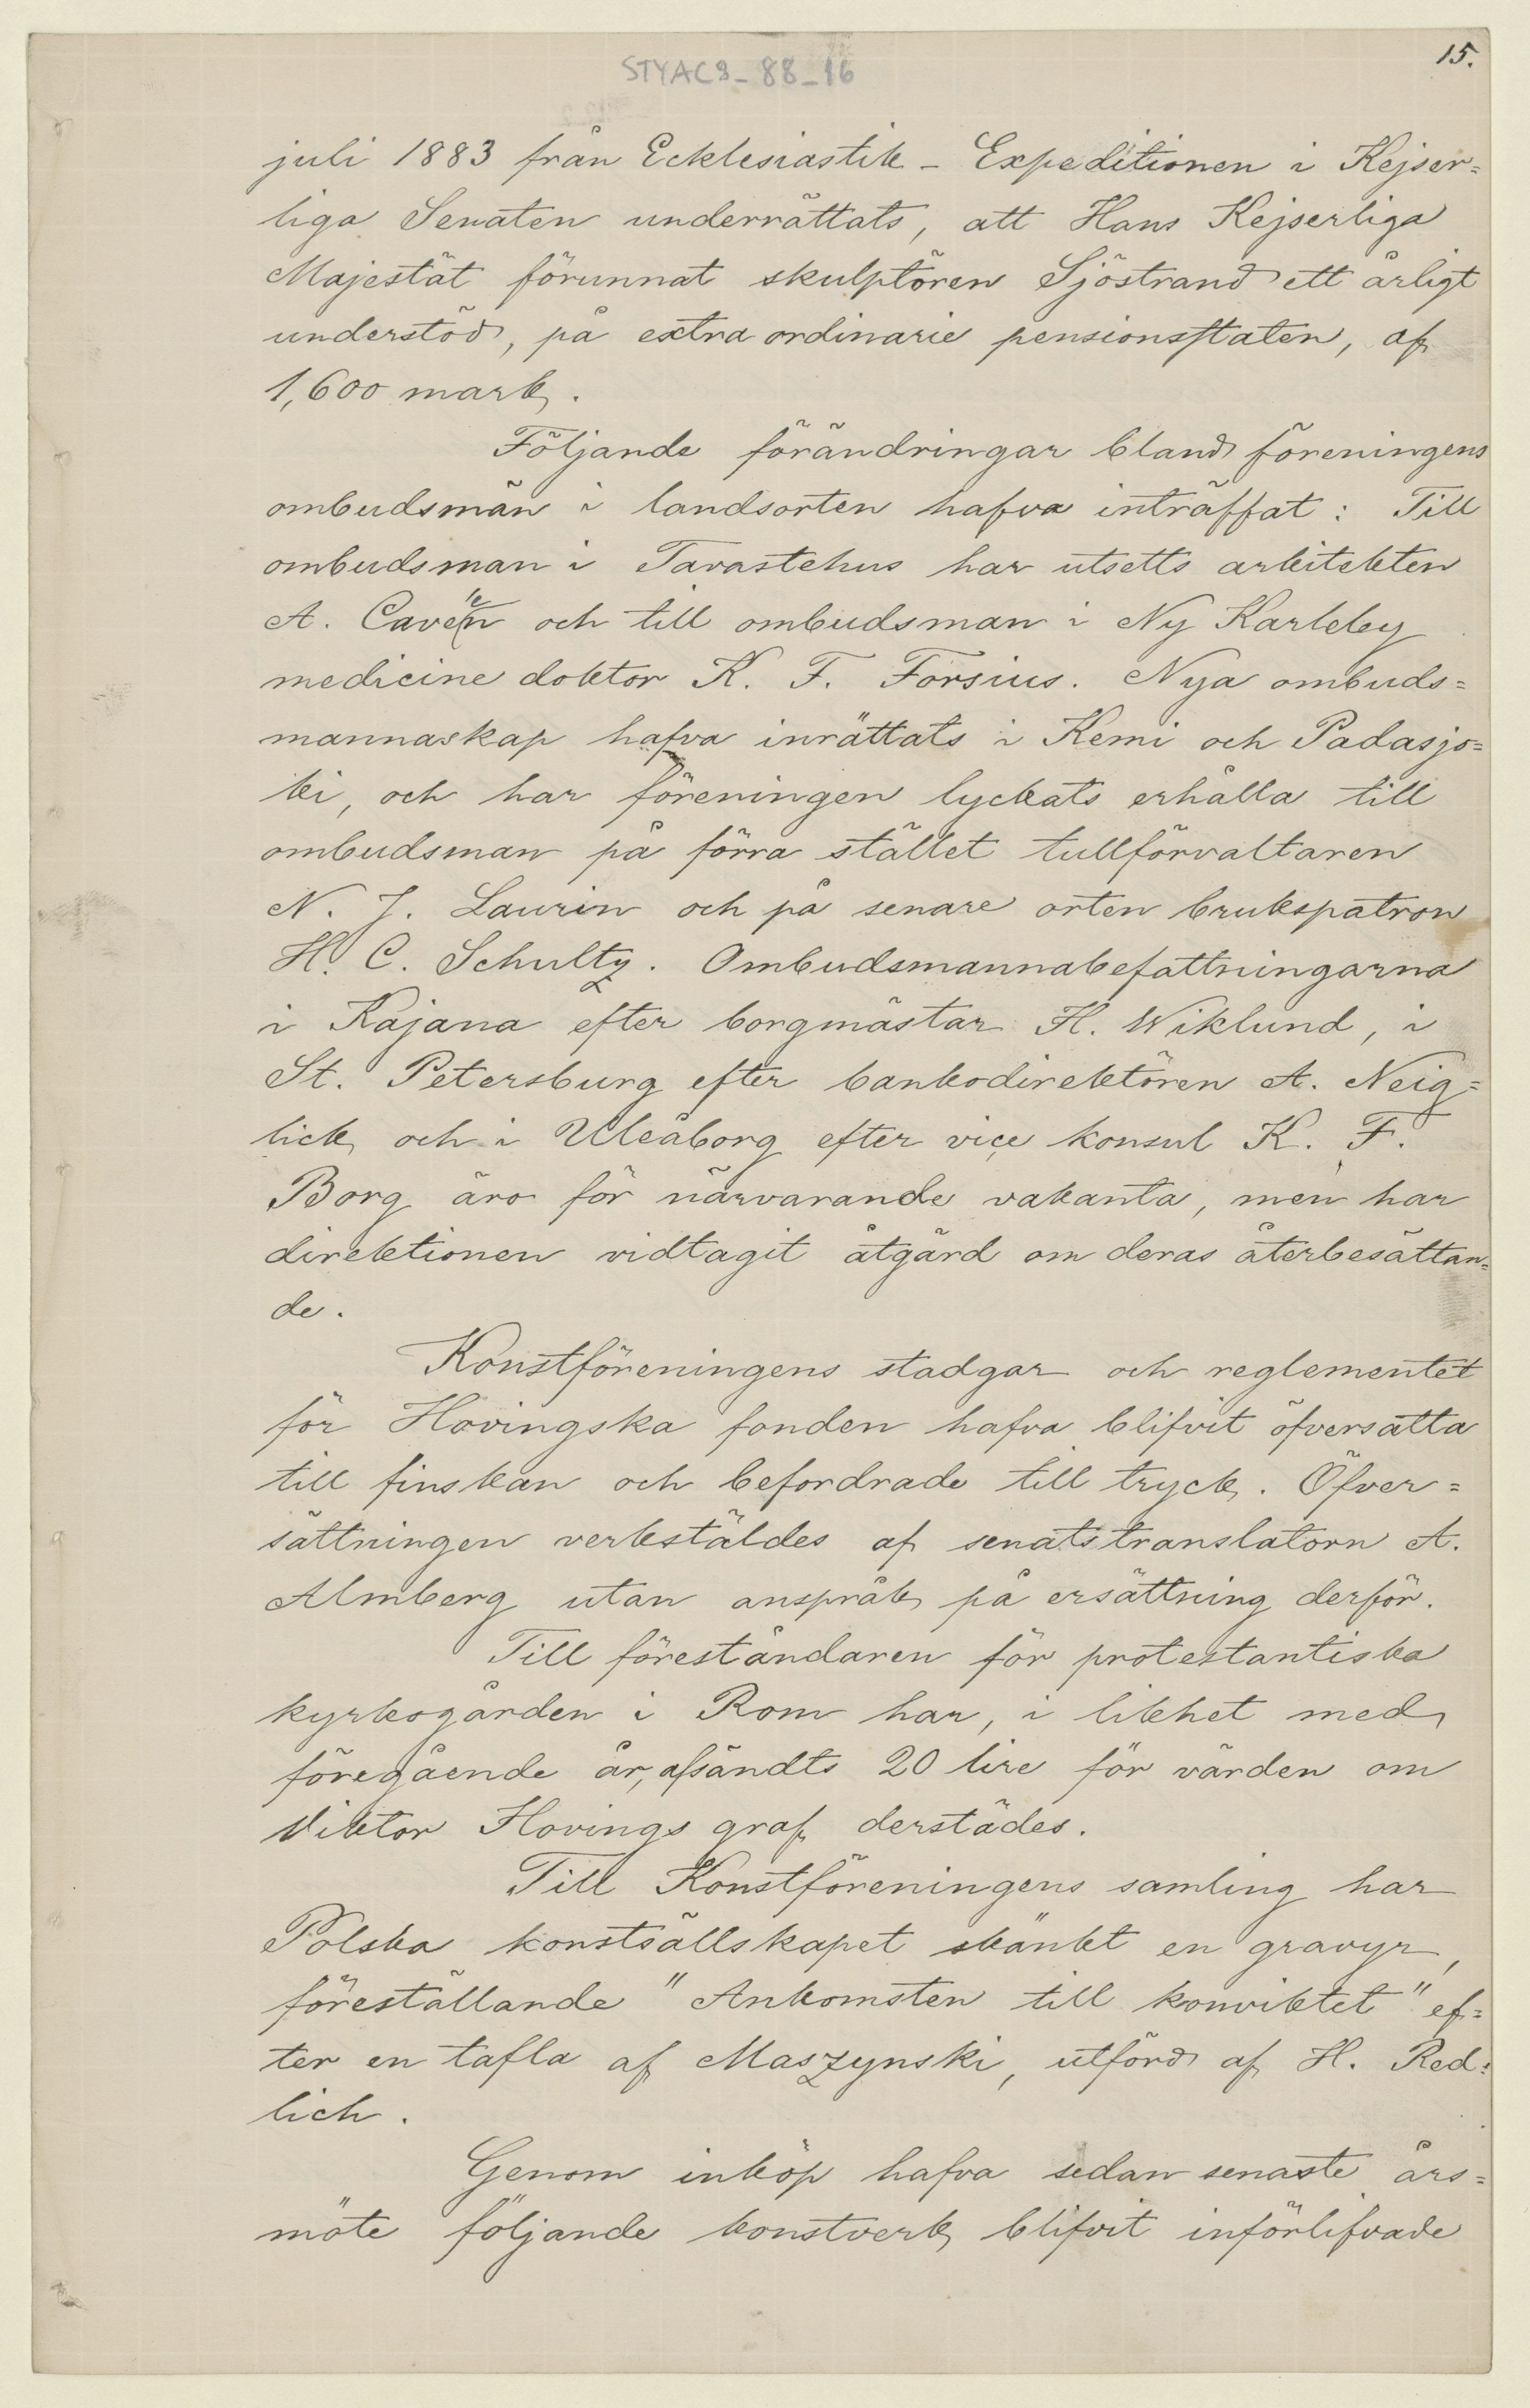 STYACS_88_16
15.
juli 1883 från Ecklesiastik-Expeditionen i Kejser=
liga Senaten underrättats, att Hans Kejserliga
Majestät förunnat skulptören Sjöstrand ett årligt
understöd, på extra ordinarie pensionsstaten, af
1,600 mark.
Följande förändringar bland föreningens
ombudsmän i landsorten hafva inträffat: Till
ombudsman i Tavastehus har utsetts arkitekten
A. Cavén och till ombudsman i Ny Karleby
medicine doktor K. F. Forsius. Nya ombuds=
mannaskap hafva inrättats i Kemi och Padasjo=
ki, och har föreningen lyckats erhålla till
ombudsman på förra stället tullförvaltaren
N. J. Laurin och på senare orten brukspatron
H. C. Schultz. Ombudsmannabefattningarna
i Kajana efter borgmästar H. Wiklund, i
St. Petersburg efter bankodirektören A. Neig=
lick och i Uleåborg efter vice konsul K. F.
Borg äro för närvarande vakanta, men har
direktionen vidtagit åtgärd om deras återbesättan=
de.
Konstföreningens stadgar och reglementet
för Hovingska fonden hafva blifvit öfversatta
till finskan och befordrade till tryck. Öfver=
sättningen verkstäldes af senatstranslatorn A.
Almberg utan anspråk på ersättning derför.
Till föreståndaren för protestantiska
kyrkogården i Rom har, i likhet med
föregående år, afsändts 20 lire för vården om
Viktor Hovings graf derstädes.
Till Konstföreningens samling har
Polska konstsällskapet skänkt en gravyr,
föreställande "Ankomsten till konviktet" ef=
ter en tafla af Maszynski, utförd af H. Red=
lich.
Genom inköp hafva sedan senaste års=
möte följande konstverk blifvit införlifvade